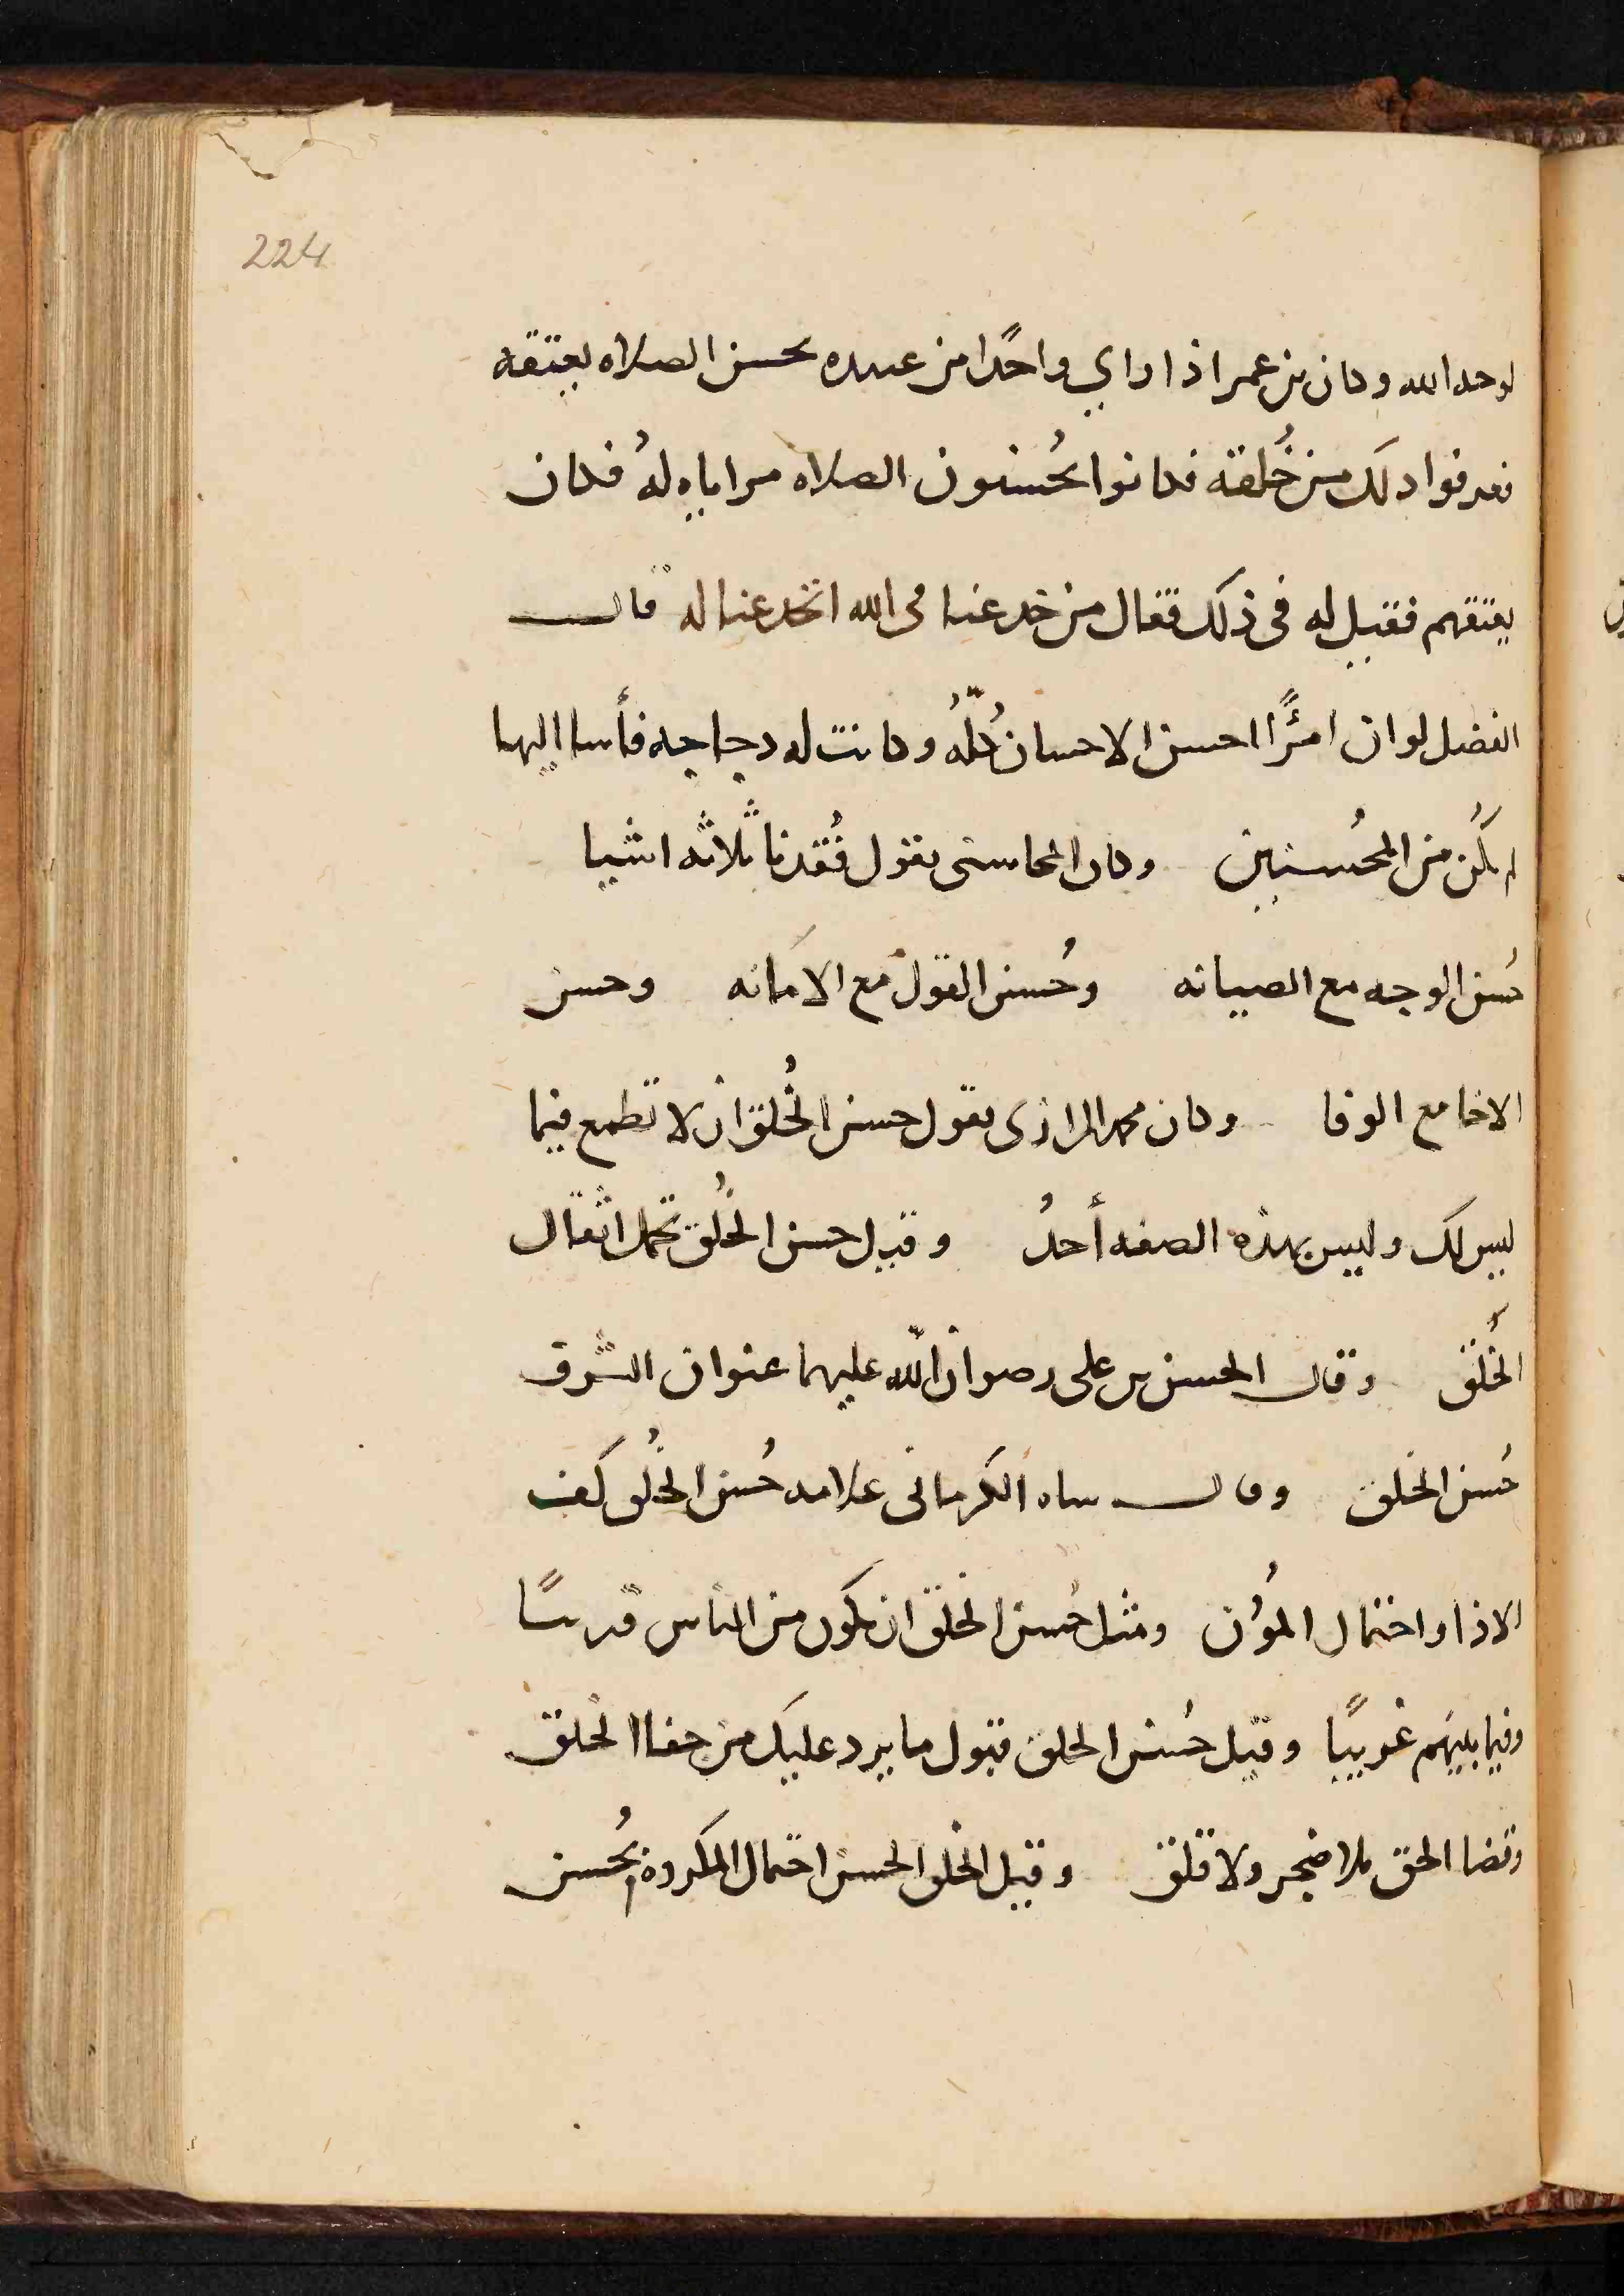 224
لوجه الله وكان بن عمر اذا راي واحدًا من عبيده يحسن الصلاه يعتقه
فعرفوا ذلك من خُلقه فكانوا يُحسنون الصلاه مراياه لهُ فكان
يعتقهم فقيل له فى ذلك فقال من خدعنا فى الله انخدعنا له قال
الفضل لو ان امرًأ احسن الاحسان كُلّهُ وكانت له دجاجه فأسا اليها
لم يكُن من المُحسنين وكان المحاسبى يقول فُقدنا ثلاثه اشيا
حُسن الوجه مع الصيانه وحُسن القول مع الامانه وحسن
الاخا مع الوفا وكان محمد الرازى يقول حسن الخُلق ان لا تطمع فيما
ليس لك وليس بهذه الصفه أحدُ وقيل حسن الخُلق تحمل اثقال
الخُلق وقال الحسن بن على رضوان الله عليهما عنوان الشرف
حُسن الخلق وقال شاه الكرمانى علامه حُسن الخُلق كف
الاذا واحتمال المُؤن ومثل حُسن الخلق ان يكون من الناس قريبًا
وفيما بينهم غريبًا وقيل حُسن الخلق قبول ما يرد عليك من جفا الخلق
وقضا الحق بلا ضجر ولا قلق وقيل الخلق الحسن احتمال المكروه بحُسن